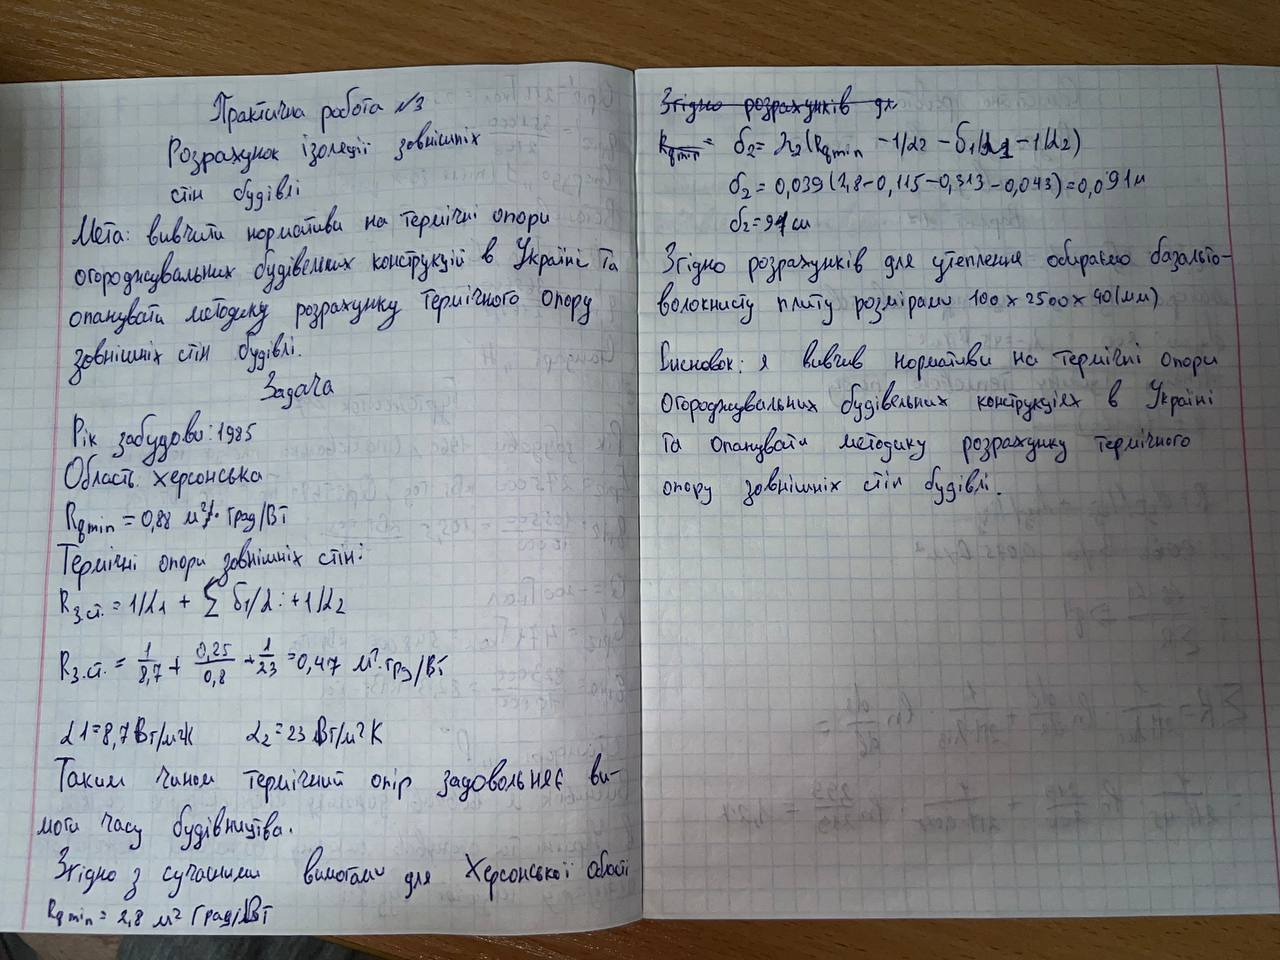 Практична робота №3
Розрахунок ізоляції зовнішніх
стін будівлі
Мета: вивчити нормативи на термічні опори
огороджувальних будівельних конструкцій в Україні та
опанувати методику розрахунку термічного опору
зовнішніх стін будівлі.
Задача
Рік забудови: 1985
Область: Херсонська
Rqmin = 0,88 м²·град/Вт
Термічні опори зовнішніх стін:
Rз.ст. = 1/α1 + Σ δ1/λi + 1/α2
Rз.ст. = 1/8,7 + 0,25/0,8 + 1/23 = 0,47 м²·град/Вт
α1 = 8,7 Вт/м²К α2 = 23 Вт/м²К
Таким чином термічний опір задовольняє ви-
моги часу будівництва.
Згідно з сучасними вимогами для Херсонської області
Rqmin = 2,8 м² град/Вт
Згідно розрахунків дл
Rqmin = δ2 = λ2(Rqmin - 1/α2 - δ1/λ1 - 1/α2)
δ2 = 0,039(2,8-0,115-0,313-0,043) = 0,091м
δ2 = 91см
Згідно розрахунків для утеплення обираємо базальто-
волокнисту плиту розмірами 100 x 2500 x 40(мм)
Висновок: я вивчив нормативи на термічні опори
огороджувальних будівельних конструкціях в Україні
та опанувати методику розрахунку термічного
опору зовнішніх стін будівлі.